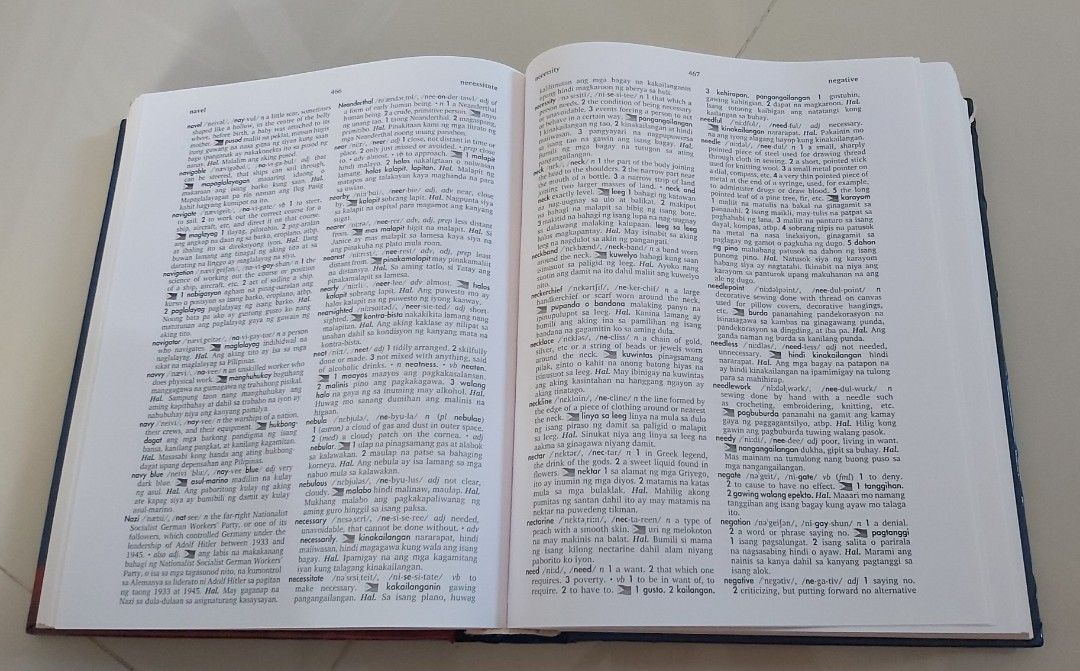 466
navel
necessitate
navel /neivəl/, /nay-vul/ n a little scar, sometimes
shaped like a hollow, in the centre of the belly
where, before birth, a baby was attached to its
mother. pusod
nanay. Hal. Malalim ang aking pusod.
navigable
can be steered, that ships can sail through.
mapaglalayagan maaaring idaong o
navigate /nævigeit/, /na-vi-gate/ vb 1 to steer,
to sail. 2 to work out the correct course for a
ship, aircraft, etc. and direct it on that course.
maglayag 1 ilayag, pilotohin. 2 pag-aralan
navigation
science of working out the course or position
of a ship, aircraft, etc. 2 act of sailing a ship.
1 nabigasyon agham na pang-suriin ang
kurso o posisyon sa isang barko, eroplano, atbp.
2 paglalayag paglalayag ng isang barko. Hal.
aking tito.
navigator n a person
who navigates. maglalayag indibidwal na
naglalayag. Hal. Ang aking tito ay isa sa mga
sikat na maglalayag sa Pilipinas.
navvy n an unskilled worker who
does physical work. manghuhukay bagu­hang
manggagawa na gumagawa ng trabahong pisikal.
Hal. Sampung taon nang manghuhukay ang
aming kapitbahay at dahil sa trabaho na iyon ay
nabubuhay niya ang kanyang pamilya.
navy /neivi/, /nay-vee/ n the warships of a nation,
their crews, and their equipment. hukbong-
dagat ang mga barkong pandigma ng isang
bansa, kanilang mangkat, at kanilang kagamitan.
Hal. Masasabi kong handa ang ating hukbong-
dagat upang depensahan ang Pilipinas.
navy blue /neivi blu:/, /nay-vee blue/ adj very
dark blue. asul-marino madilim na kulay
ng asul. Hal. Ang paboritong kulay ng aking
ate kapag siya ay bumibili ng damit ay kulay
asul-marino.
Nazi /nætsi/, /nat-see/ n the far-right National
Socialist German Workers' Party, or one of its
followers, which controlled Germany under the
leadership of Adolf Hitler between 1933 and
1945. • also adj. ang labis na makakanang
bahagi ng Nationalist Socialist German Workers'
Party, o isa sa mga tagasunod nito, na kumontrol
sa Alemanya sa liderato ni Adolf Hitler sa pagitan
ng taong 1933 at 1945. Hal. May gaganap na
Nazi sa dula-dulaan sa asignaturang kasaysayan.
Neanderthal /niændərtɔl/, /nee-an-der-tawl/ adj of
a form of early human being. • n 1 a Neanderthal
human being. 2 a crude, primitive person. anyo
ng unang tao. 1 taong Neanderthal. 2 mangmang,
primitibong tao. Hal. Pinakikita kami ng mga litrato ng
mga Neanderthal noong unang panahon.
near /ni:r/, /neer/ adj 1 close, not distant in time or
place. 2 only just missed or avoided. • prep close
to. • adv almost. • vb to approach. 1 malapit
hindi malayo. 2 halos nakaligtaan o naiwasan
lamang. halos kalapit, lapitan. Hal. Malapit na
sa uwian.
nearby /ni:rbai/, /neer-bie/ adj, adv near, close
by. kalapit sobrang lapit. Hal. Nagpunta siya
sa kalapit na ospital para magamot ang kanyang
sugat.
nearer /ni:rər/, /neer-rer/ adv, adj, prep less distant
from. mas malapit higit na malapit. Hal. Si
Janice ay mas malapit sa lamesa kaya siya na
ang pinakuha ng plato mula roon.
nearest /ni:rist/, /neer-rest/ adv, adj, prep least
distant from. pinakamalapit may pinakamaliit
na distansya. Hal. Sa aming tatlo, si Tatay ang
pinakamalapit sa lamesa.
nearly /ni:rli/, /neer-lee/ adv almost. halos
kalapit sobrang lapit. Hal. Ang puwesto mo ay
halos kalapit na ng puwesto ng iyong kaaway.
nearsighted /nirsaitəd/, /neer-sie-ted/ adj short-
sighted. kontra-bista nakakikita lamang nang
malapitan. Hal. Ang aking kaklase ay nilipat sa
unahan dahil sa kondisyon ng kanyang mata na
kontra-bista.
neat /ni:t/, /neet/ adj 1 tidily arranged. 2 skilfully
done or made. 3 not mixed with anything, said
of alcoholic drinks. • n neatness. • vb neaten.
1 maayos maayos ang pagkakasalansan.
2 malinis pino ang pagkakagawa. 3 walang
halo na gaya ng sa inuming may alkohol. Hal.
Huwag mo sanang dumihan ang malinis na
higaan.
nebula /nebjulə/, /ne-byu-la/ n (pl nebulae)
1 (astron) a cloud of gas and dust in outer space.
2 (med) a cloudy patch on the cornea. • adj
nebular. 1 ulap na pinagsamang gas at alikabok
sa kalawakan. 2 maulap na patse sa bahaging
korneya. Hal. Ang nebula ay isa lamang sa mga
nabuo mula sa kalawakan.
nebulous /nebjuləs/, /ne-byu-lus/ adj not clear,
cloudy. malabo hindi malinaw, maulap. Hal.
Mukhang malabo ang pagkakapaliwanag ng
aming guro hinggil sa isang paksa.
necessary /nesəseri/, /ne-si-se-ree/ adj needed,
unavoidable, that cannot be done without. • adv
necessarily. kinakailangan nararapat, hindi
maiiwasan, hindi magagawa kung wala ang isang
bagay. Hal. Ipamigay na ang mga kagamitang
iyan kung talagang kinakailangan.
necessitate /nəsesiteit/, /ni-se-si-tate/ vb to
make necessary. kakailanganin gawing
pangangailangan. Hal. Sa isang plano, huwag
necessity
467
negative
kalilimutan ang mga bagay na kakailanganin
upang hindi magkaroon ng aberya sa huli.
necessity /nəsesiti/, /ni-se-si-tee/ n 1 that which a
person needs. 2 the condition of being necessary
or unavoidable. 3 events forcing a person to act
or behave in a certain way. pangangailangan
1 kinakailangan ng tao. 2 kinakailangan at hindi
maiwasan. 3 pangyayari na nagpupuwersa
sa isang tao na gawin ang isang bagay. Hal.
Bumili ng mga bagay na tutugon sa ating
pangangailangan.
neck /nek/, /neck/ n 1 the part of the body joining
the head to the shoulders. 2 the narrow part near
the mouth of a bottle. 3 a narrow strip of land
joining two larger masses of land. • neck and
neck exactly level. leeg 1 bahagi ng katawan
na nag-uugnay sa ulo at balikat. 2 makipot
na bahagi na malapit sa bibig ng isang bote.
3 makitid na bahagi ng isang lupa na nag-uugnay
sa dalawang malaking pantay. leeg sa leeg
halos magkapantay. Hal. May insabit sa aking
leeg na nagdulot sa akin ng pangangati.
neckband /nekbænd/, /neck-band/ n a band worn
around the neck. kuwelyo bahagi kung saan
isinusuot sa paligid ng leeg. Hal. Ayoko nang
suotin ang damit na ito dahil maliit ang kuwelyo
nito.
neckerchief /nekərtʃif/, /ne-ker-chif/ n a large
handkerchief or scarf worn around the neck.
pupanda o bandana malaking panyo na
ipinupulupot sa leeg. Hal. Kanina lamang ay
bumili ang aking ina sa pamilihan ng isang
bandana na gagamitin ko sa aming dula.
necklace /nekləs/, /ne-cliss/ n a chain of gold,
silver, etc or a string of beads or jewels worn
around the neck. kuwintas pinagsamang
pilak, ginto o kahit na anong batong hiyas na
isinusuot sa leeg. Hal. May binigay na kuwintas
ang aking kasintahan na hanggang ngayon ay
aking itinatago.
neckline /neklain/, /ne-cline/ n the line formed by
the edge of a piece of clothing around or nearest
the neck. linya sa leeg linya na mula sa dulo
ng isang piraso ng damit sa paligid o malapit
sa leeg. Hal. Sinukat niya ang linya sa leeg na
aakma sa ginagawa niyang damit.
nectar /nektər/, /nec-tar/ n 1 in Greek legend,
the drink of the gods. 2 a sweet liquid found in
flowers. nektar 1 sa alamat ng mga Griyego,
ito ay inumin ng mga diyos. 2 matamis na katas
mula sa mga bulaklak. Hal. Mahilig akong
pumitas ng santan dahil ito ay may matamis na
nektar na puwedeng tikman.
nectarine /nektərin/, /nec-ta-reen/ n a type of
peach with a smooth skin. uri ng melokoton
na may makinis na balat. Hal. Bumili si mama
ng isang kilong nectarine dahil alam niyang
paborito ko iyon.
need /ni:d/, /need/ n 1 a want. 2 that which one
requires. 3 poverty. • vb 1 to be in want of, to
require. 2 to have to. 1 gusto. 2 kailangan.
3 kahirapan. pangangailangan 1 gustuhin,
gawing kahingian. 2 dapat na magkaroon. Hal.
Isang totoong kaibigan ang natatangi kong
kailangan sa buhay.
needful /ni:dful/, /need-ful/ adj necessary.
kinakailangan nararapat. Hal. Pakainin mo
na ang iyong alagang hayop kung kinakailangan.
needle /ni:dəl/, /nee-dul/ n 1 a small, sharply
pointed piece of steel used for drawing thread
through cloth in sewing. 2 a short, pointed stick
used for knitting wool. 3 a small metal pointer on
a dial, compass, etc. 4 a very thin pointed piece of
metal at the end of a syringe, used, for example,
to administer drugs or draw blood. 5 the long
pointed leaf of a pine tree, fir, etc. karayom
1 maliit na matulis na bakal na ginagamit sa
pananahi. 2 isang maikli, may-tulis na patpat sa
paghahabi ng lana. 3 maliit na panturo sa isang
dayal, kompas, atbp. 4 sobrang nipis na patusok
na metal na nasa ineksiyon, ginagamit sa
paglagay ng gamot o pagkuha ng dugo. 5 dahon
ng pino mahabang patusok na dahon ng isang
punong pino. Hal. Natusok siya ng karayom
habang siya ay nagtatahi. Ikinabit na niya ang
karayom sa panturok upang makuhanan na ang
ale ng dugo.
needlepoint /ni:dəlpɔint/, /nee-dul-point/ n
decorative sewing done with thread on canvas
used for pillow covers, decorative hangings,
etc. burda pananahing pandekorasyon na
isinasagawa sa kambas na ginagawang punda,
pandekorasyon sa dingding, at iba pa. Hal. Ang
ganda naman ng burda sa kanilang punda.
needless /ni:dləs/, /need-less/ adj not needed,
unnecessary. hindi kinakailangan hindi
nararapat. Hal. Ang mga bagay na patapon na
ay hindi kinakailangan na ipamimigay na tulong
para sa mahihirap.
needlework /ni:dəlwərk/, /nee-dul-wurk/ n
sewing done by hand with a needle such
as crocheting, embroidering, knitting, etc.
pagbuburda pananahi na gamit ang kamay
gaya ng paggagantsilyo, atbp. Hal. Hilig kong
gawin ang pagbuburda tuwing walang pasok.
needy /ni:di/, /nee-dee/ adj poor, living in want.
nangangailangan dukha, gipit sa buhay. Hal.
Mas mainam na tumulong nang buong puso sa
mga nangangailangan.
negate /nəgeit/, /ni-gate/ vb (fml) 1 to deny.
2 to cause to have no effect. 1 tanggihan.
2 gawing walang epekto. Hal. Maaari mo namang
tanggihan ang isang bagay kung ayaw mo talaga
ito.
negation /nəgeiʃən/, /ni-gay-shun/ n 1 a denial.
2 a word or phrase saying no. pagtanggi
1 isang pagsalungat. 2 isang salita o parirala
na nagsasabing hindi o ayaw. Hal. Marami ang
nainis sa kanya dahil sa kanyang pagtanggi sa
isang alok.
negative /negətiv/, /ne-ga-tiv/ adj 1 saying no.
2 criticizing, but putting forward no alternative